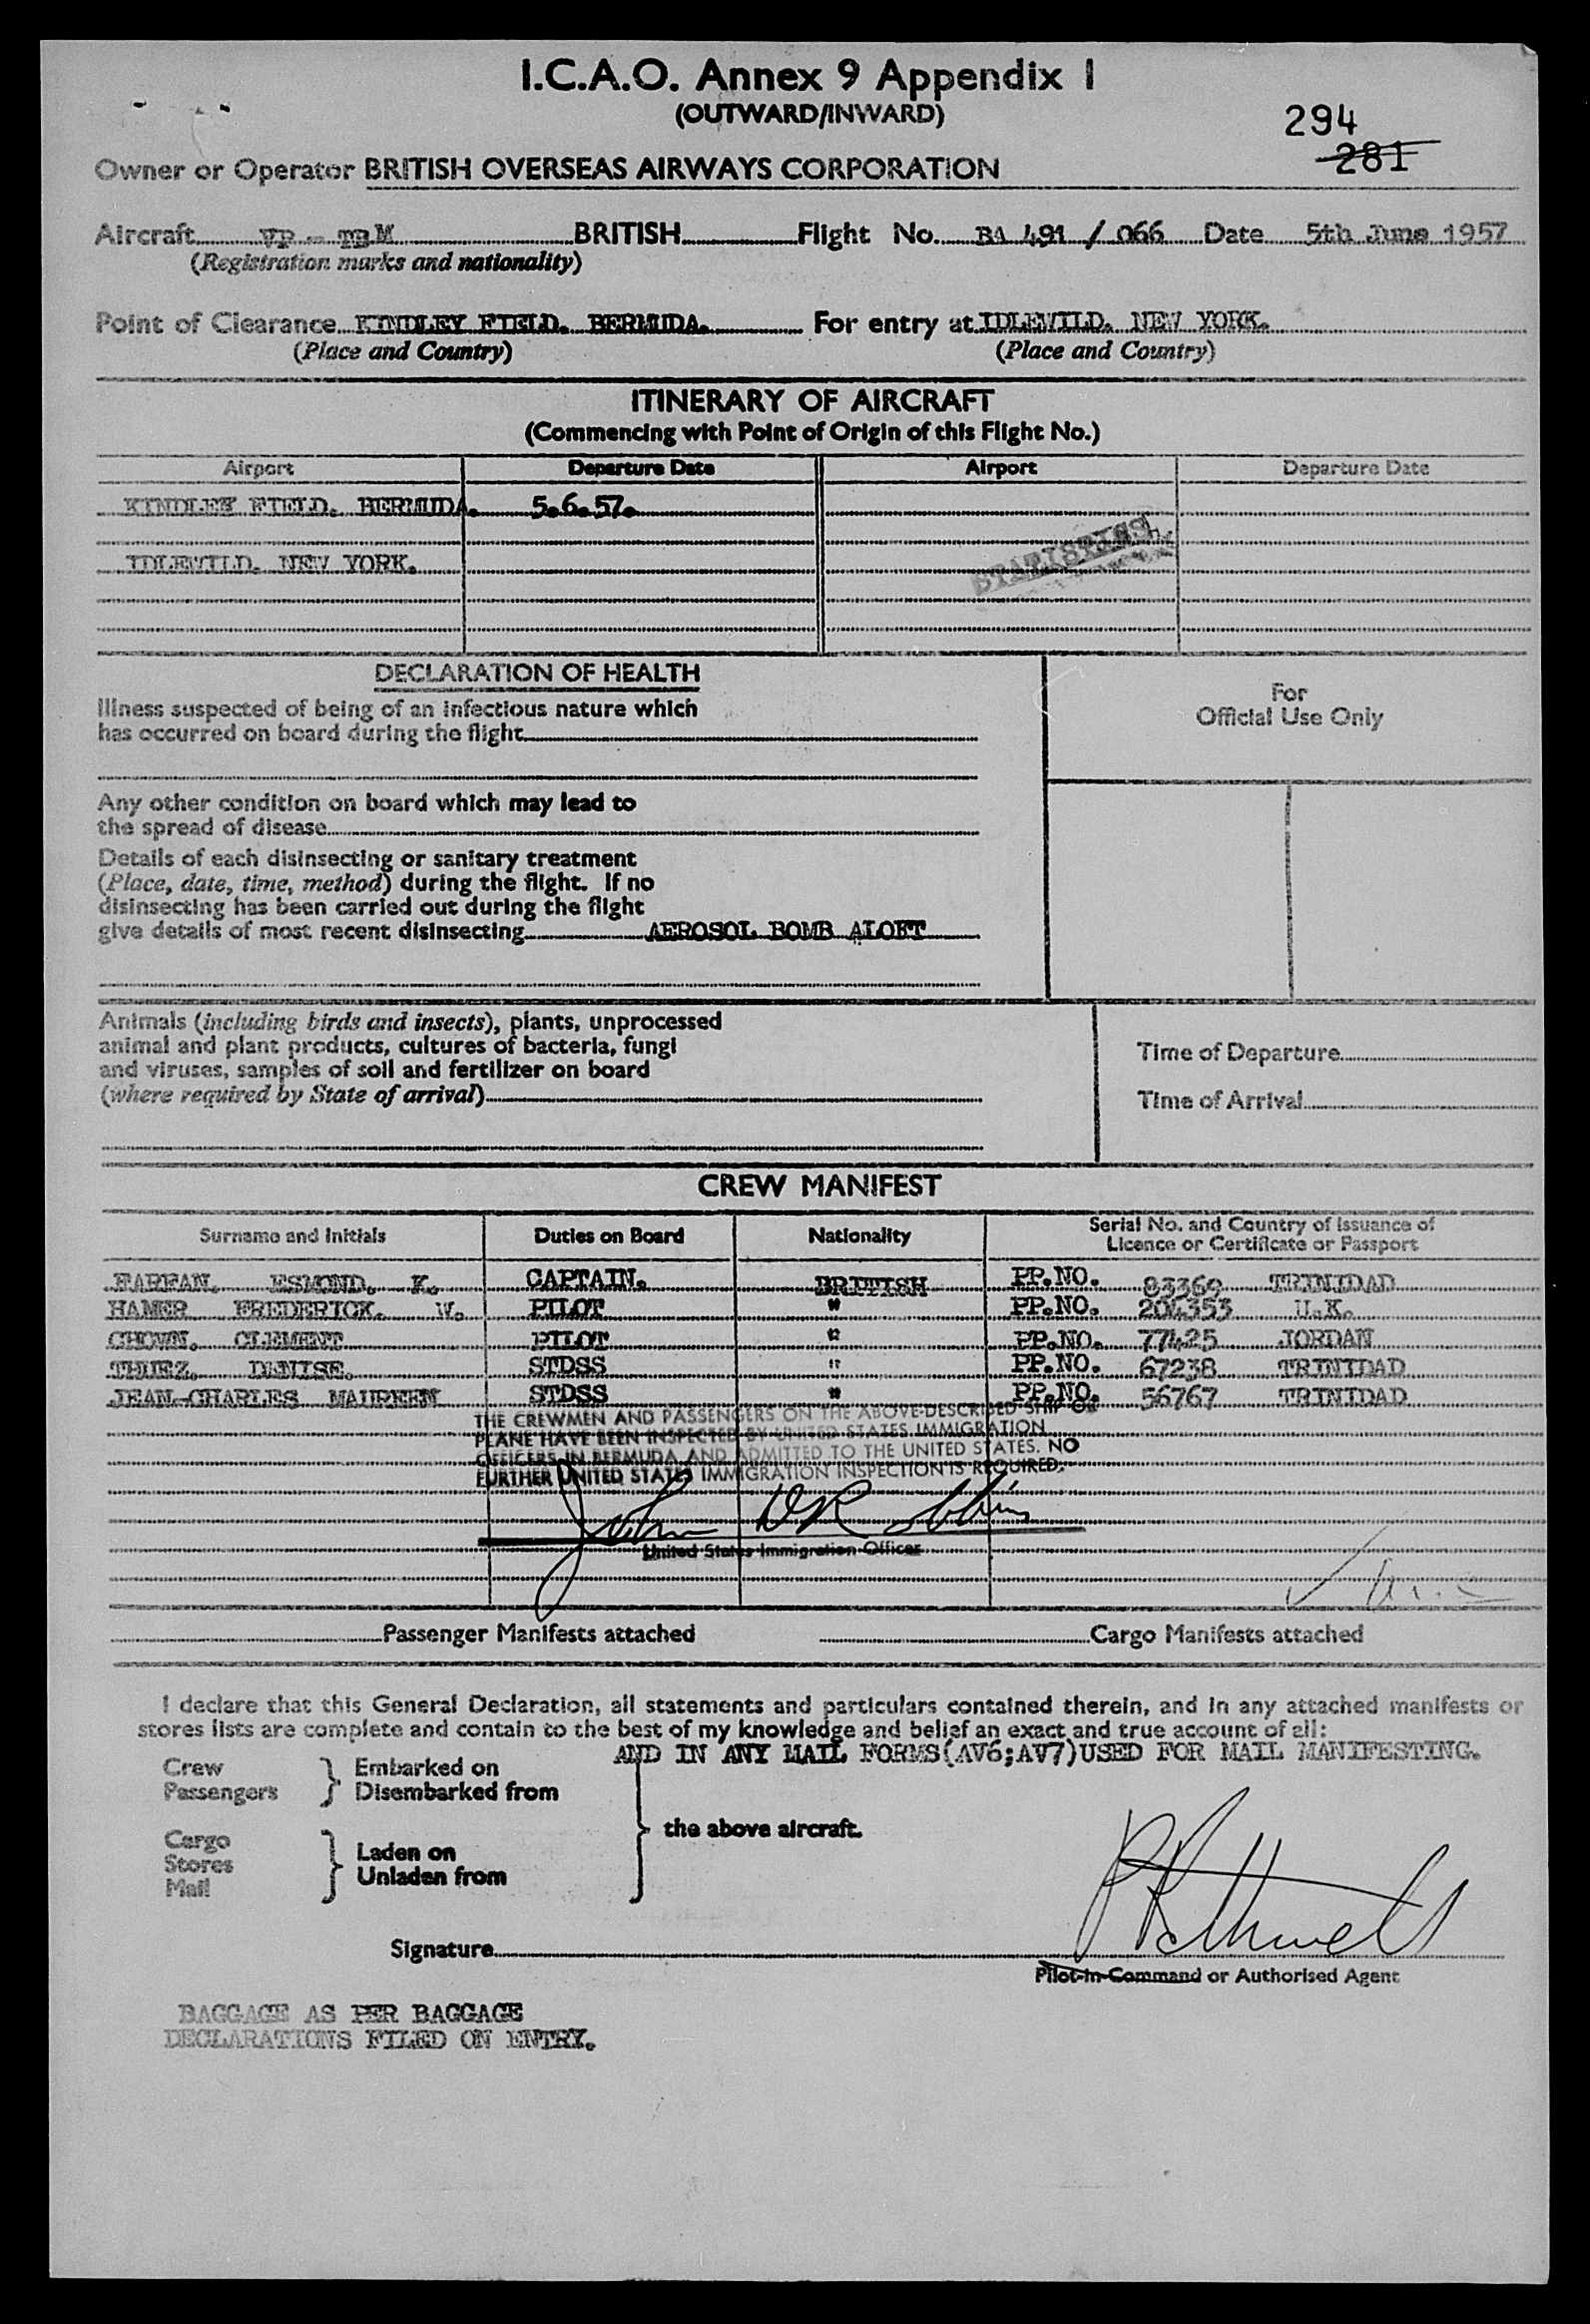 I.C.A.O. Annex 9 Appendix 1
(OUTWARD/INWARD)
294
281
Owner or Operator BRITISH OVERSEAS AIRWAYS CORPORATION
Aircraft VP - TBM BRITISH Flight No. BA 491 / 066 Date 5th June 1957
(Registration marks and nationality)
Point of Clearance KINDLEY FIELD. BERMUDA. For entry at IDLEWILD. NEW YORK.
(Place and Country) (Place and Country)
ITINERARY OF AIRCRAFT
(Commencing with Point of Origin of this Flight No.)
Airport Departure Date Airport Departure Date
KINDLEY FIELD. BERMUDA. 5.6.57.
STATISTICS
IDLEWILD. NEW YORK.
DECLARATION OF HEALTH
Illness suspected of being of an infectious nature which
has occurred on board during the flight
For
Official Use Only
Any other condition on board which may lead to
the spread of disease
Details of each disinsecting or sanitary treatment
(Place, date, time, method) during the flight. If no
disinsecting has been carried out during the flight
give details of most recent disinsecting AEROSOL BOMB ALOFT
Animals (including birds and insects), plants, unprocessed
animal and plant products, cultures of bacteria, fungi
and viruses, samples of soil and fertilizer on board
(where required by State of arrival)
Time of Departure
Time of Arrival
CREW MANIFEST
Surname and Initials Duties on Board Nationality Serial No. and Country of Issuance of
Licence or Certificate or Passport
FARFAN. ESMOND. K. CAPTAIN. BRITISH PP.NO. 83369 TRINIDAD
HAMER FREDERICK. W. PILOT " PP.NO. 204353 U.K.
CHOWN. CLEMENT PILOT " PP.NO. 77425 JORDAN
DENISE. STDSS " PP.NO. 67238 TRINIDAD
JEAN-CHARLES MAUREEN STDSS " PP.NO. 56767 TRINIDAD
THE CREWMEN AND PASSENGERS ON THE ABOVE-DESCRIBED SHIP OR
PLANE HAVE BEEN INSPECTED BY UNITED STATES IMMIGRATION
OFFICERS IN BERMUDA AND ADMITTED TO THE UNITED STATES. NO
FURTHER UNITED STATES IMMIGRATION INSPECTION IS REQUIRED.
United States Immigration Officer
Passenger Manifests attached Cargo Manifests attached
I declare that this General Declaration, all statements and particulars contained therein, and in any attached manifests or
stores lists are complete and contain to the best of my knowledge and belief an exact and true account of all:
AND IN ANY MAIL FORMS(AV6;AV7)USED FOR MAIL MANIFESTING.
Crew
Passengers
} Embarked on
Disembarked from
the above aircraft.
Cargo
Stores
Mail
} Laden on
Unladen from
Signature
Pilot-in-Command or Authorised Agent
BAGGAGE AS PER BAGGAGE
DECLARATIONS FILED ON ENTRY.